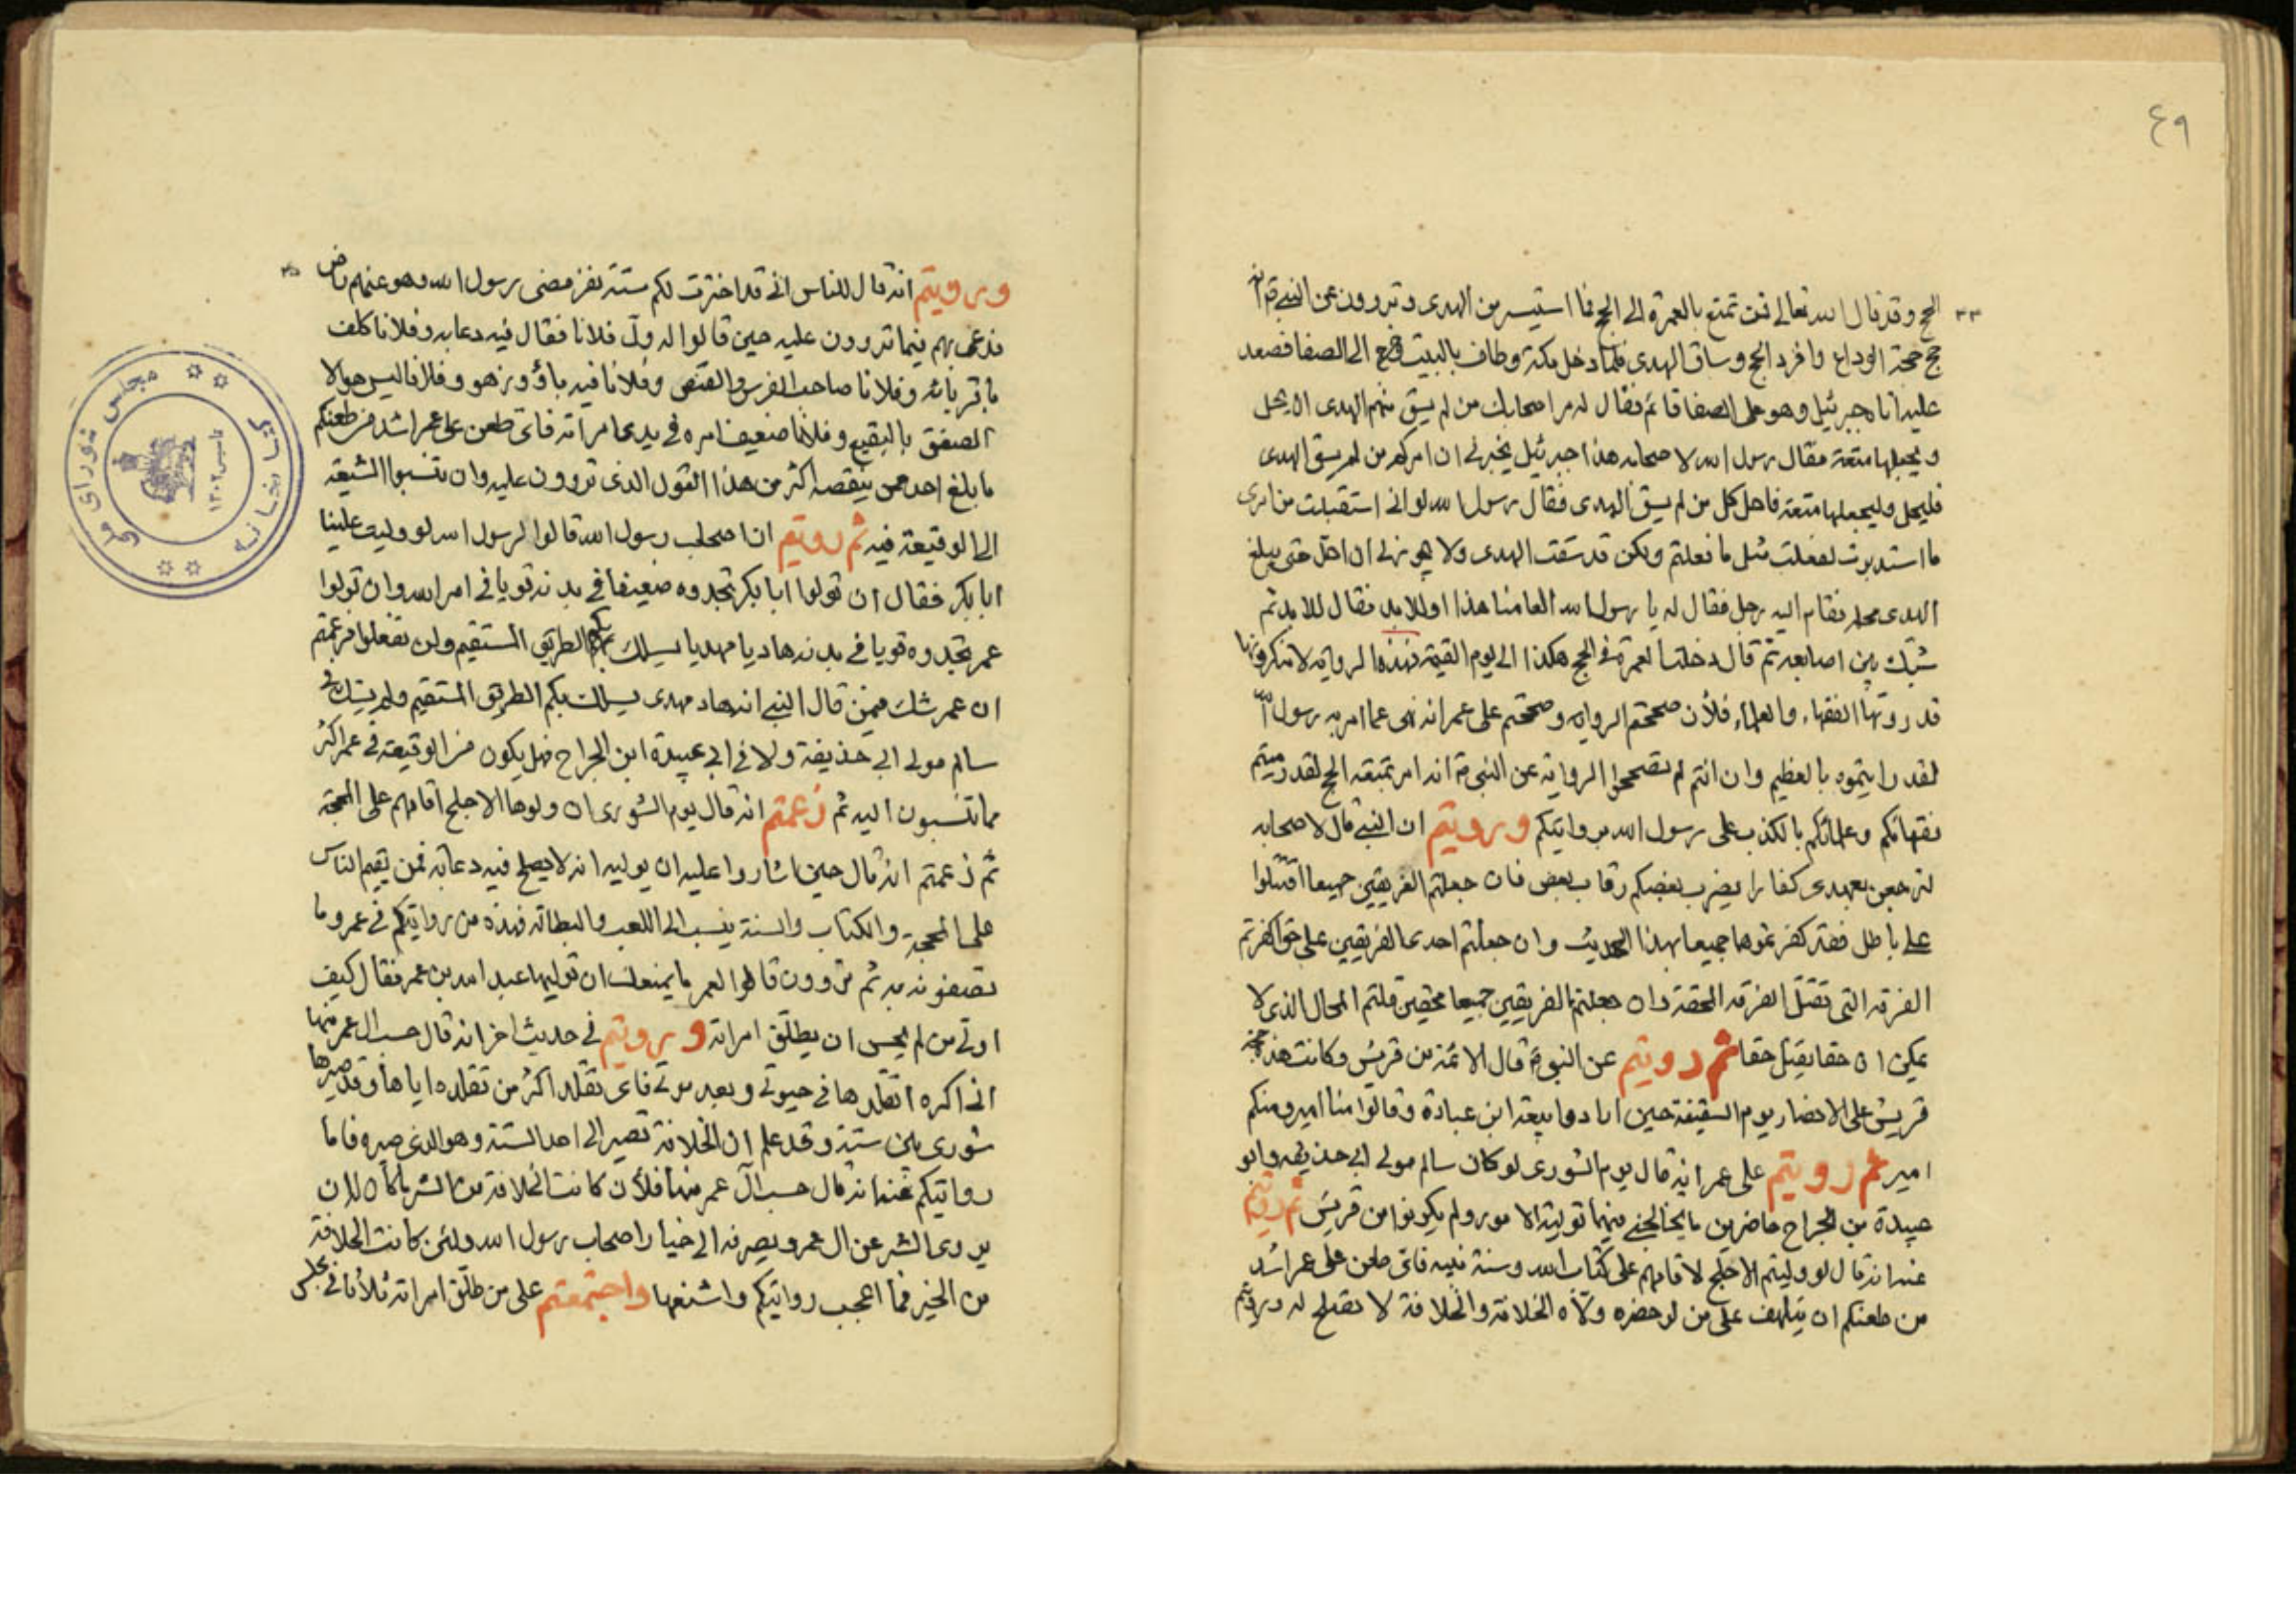 ٤٩
الحج وقد قال الله تعالى فمن تمتع بالعمرة الى الحج فما استيسر من الهدى وتروون عن النبى انه
حج حجة الوداع وافرد الحج وساق الهدى فلما دخل مكة وطاف بالبيت خرج الى الصفا فصعد
عليه اتاه جبرئيل وهو على الصفا قائم فقال له مر اصحابك من لم يسق منهم الهدى ان يحل
ويجعلها متعة فقال رسول الله لاصحابه هذا جبرئيل يخبرنى ان امركم من لم يسق الهدى
فليحل وليجعلها متعة فاحل كل من لم يسق الهدى فقال رسول الله لو انى استقبلت من امرى
ما استدبرت لفعلت مثل ما فعلتم ولكن قد سقت الهدى ولا يجوز لى ان احل حتى يبلغ
الهدى محله فقام اليه رجل فقال له يا رسول الله العامنا هذا او للابد فقال للابد ثم
شبك بين اصابعه ثم قال دخلت العمرة فى الحج هكذا الى يوم القيمة فهذه الرواية لا تنكرونها
قد روتها الفقهاء والعلماء فلأن صححتم الرواية وصححتم على عمر انه نهى عما امر به رسول الله
لقد رميتموه بالعظيم وان انتم لم تصححوا الرواية عن النبى انه امر بمتعة الحج لقد رميتم
فقهائكم وعلمائكم بالكذب على رسول الله بروايتكم ورويتم ان النبى قال لاصحابه
لترجعن بعدى كفارا يضرب بعضكم رقاب بعض فان جعلتم الفريقين جميعا اقتتلوا
على باطل فقد كفرتموها جميعا بهذا الحديث وان جعلتم احدى الفريقين على حق اكفرتم
الفرقة التى تقتل الفرقة المحقة وان جعلتم الفريقين جميعا محقين قلتم المحال الذى لا
يمكن ان حقا يقتل حقا ثم رويتم عن النبى قال الائمة من قريش وكانت هذه حجة
قريش على الانصار يوم السقيفة حين ارادوا بيعة ابن عبادة وقالوا منا امير ومنكم
امير ثم رويتم على عمر انه قال يوم الشورى لو كان سالم مولى ابى حذيفه وابو
عبيدة بن الجراح حاضرين ما يخالجنى فيهما تولية الامور ولم يكونوا من قريش ثم رويتم
عنه انه قال لو وليتم الاجلح لاقامهم على كتاب الله وسنة نبيه فاى طعن على عمر اشد
من طعنكم ان يتلهف على من لو حضره ولاه الخلافة والخلافة لا تصلح له ورويتم
ورويتم انه قال للناس انى قد اخترت لكم ستة نفر مضى رسول الله وهو عنهم راض
فدعى بهم فيما تروون عليه حين قالوا له ول فلانا فقال فيه دعابه وفلانا كلف
باقربائه وفلانا صاحب الفرس والقنص وفلانا فيه بأو وزهو وفلانا اليس هو الا
الصفق بالبقيع وفلانا ضعيف امره فى يدى امرأته فاى طعن على عمر اشد من طعنكم
ما بلغ احد ممن ينقصه اكثر من هذا القول الذى تروون عليه وان تنسبوا الشيعة
الى الوقيعة فيه ثم رويتم ان اصحاب رسول الله قالوا لرسول الله لو وليت علينا
ابا بكر فقال ان تولوا ابا بكر تجدوه ضعيفا فى بدنه قويا فى امر الله وان تولوا
عمر تجدوه قويا فى بدنه هاديا مهديا يسلك بكم الطريق المستقيم ولن تفعلوا فزعمتم
ان عمر شك فيمن قال النبى انه هاد مهدى يسلك بكم الطريق المستقيم ولم يشك فى
سالم مولى ابى حذيفة ولا فى ابى عبيدة ابن الجراح فهل يكون من الوقيعة فى عمر اكثر
مما تنسبون اليه ثم زعمتم انه قال يوم الشورى ان ولوها الاجلح اقامهم على المحجة
ثم زعمتم انه قال حين اشاروا عليه ان يوليه انه لا يصلح فيه دعابه فمن يقيم الناس
على المحجة والكتاب والسنة ينسب الى اللعب والبطالة فهذه من روايتكم فى عمر وما
تصفونه به ثم تروون قالوا لعمر ما يمنعك ان توليها عبد الله بن عمر فقال كيف
اولى من لم يحسن ان يطلق امراته ورويتم فى حديث اخر انه قال حسب ال عمر منها
انى اكره اتقلدها فى حيوتى وبعد موتى فاى تقلد اكثر من تقلده اياها وقد صيرها
شورى بين ستة وقد علم ان الخلافة تصير الى احد الستة وهو الذى صيره فاما
روايتكم عنه انه قال حسب آل عمر منها فلأن كانت الخلافة من الشر ما كان له ان
يروى الشر عن ال عمر ويصرفه الى خيار اصحاب رسول الله ولئن كانت الخلافة
من الخير فما اعجب روايتكم واشنعها واجتمعتم على من طلق امراته ثلاثا فى مجلس
كتابخانه مجلس شورای ملی
تاسیس ۱۳۰۲